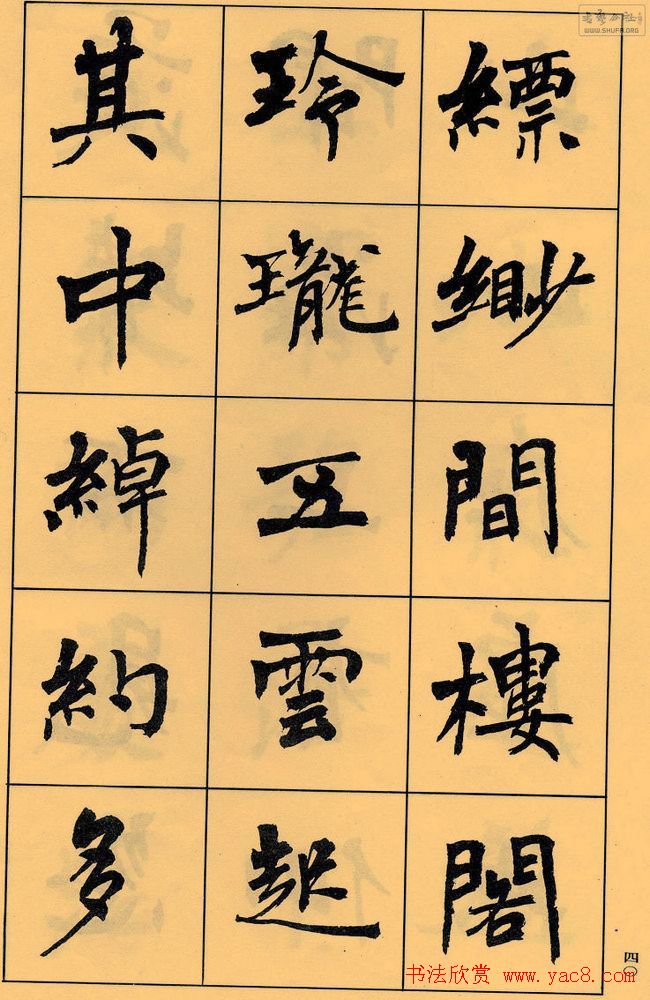 縹緲間樓閣
玲瓏五雲起
其中綽約多
四〇
WWW.SHUFA.ORG
书法欣赏 www.yac8.com